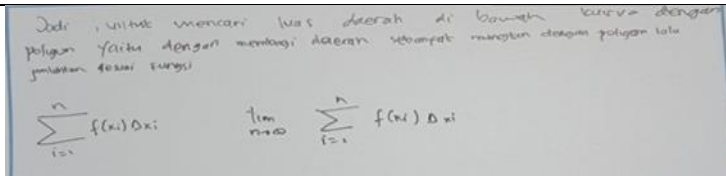 Jadi, untuk mencari luas daerah di bawah kurva dengan
poligon yaitu dengan membagi daerah sebanyak mungkin dengan poligon lalu
jumlahkan sesuai fungsi
n n
∑ f(xi) Δxi lim ∑ f(xi) Δxi
i=1 n→∞ i=1